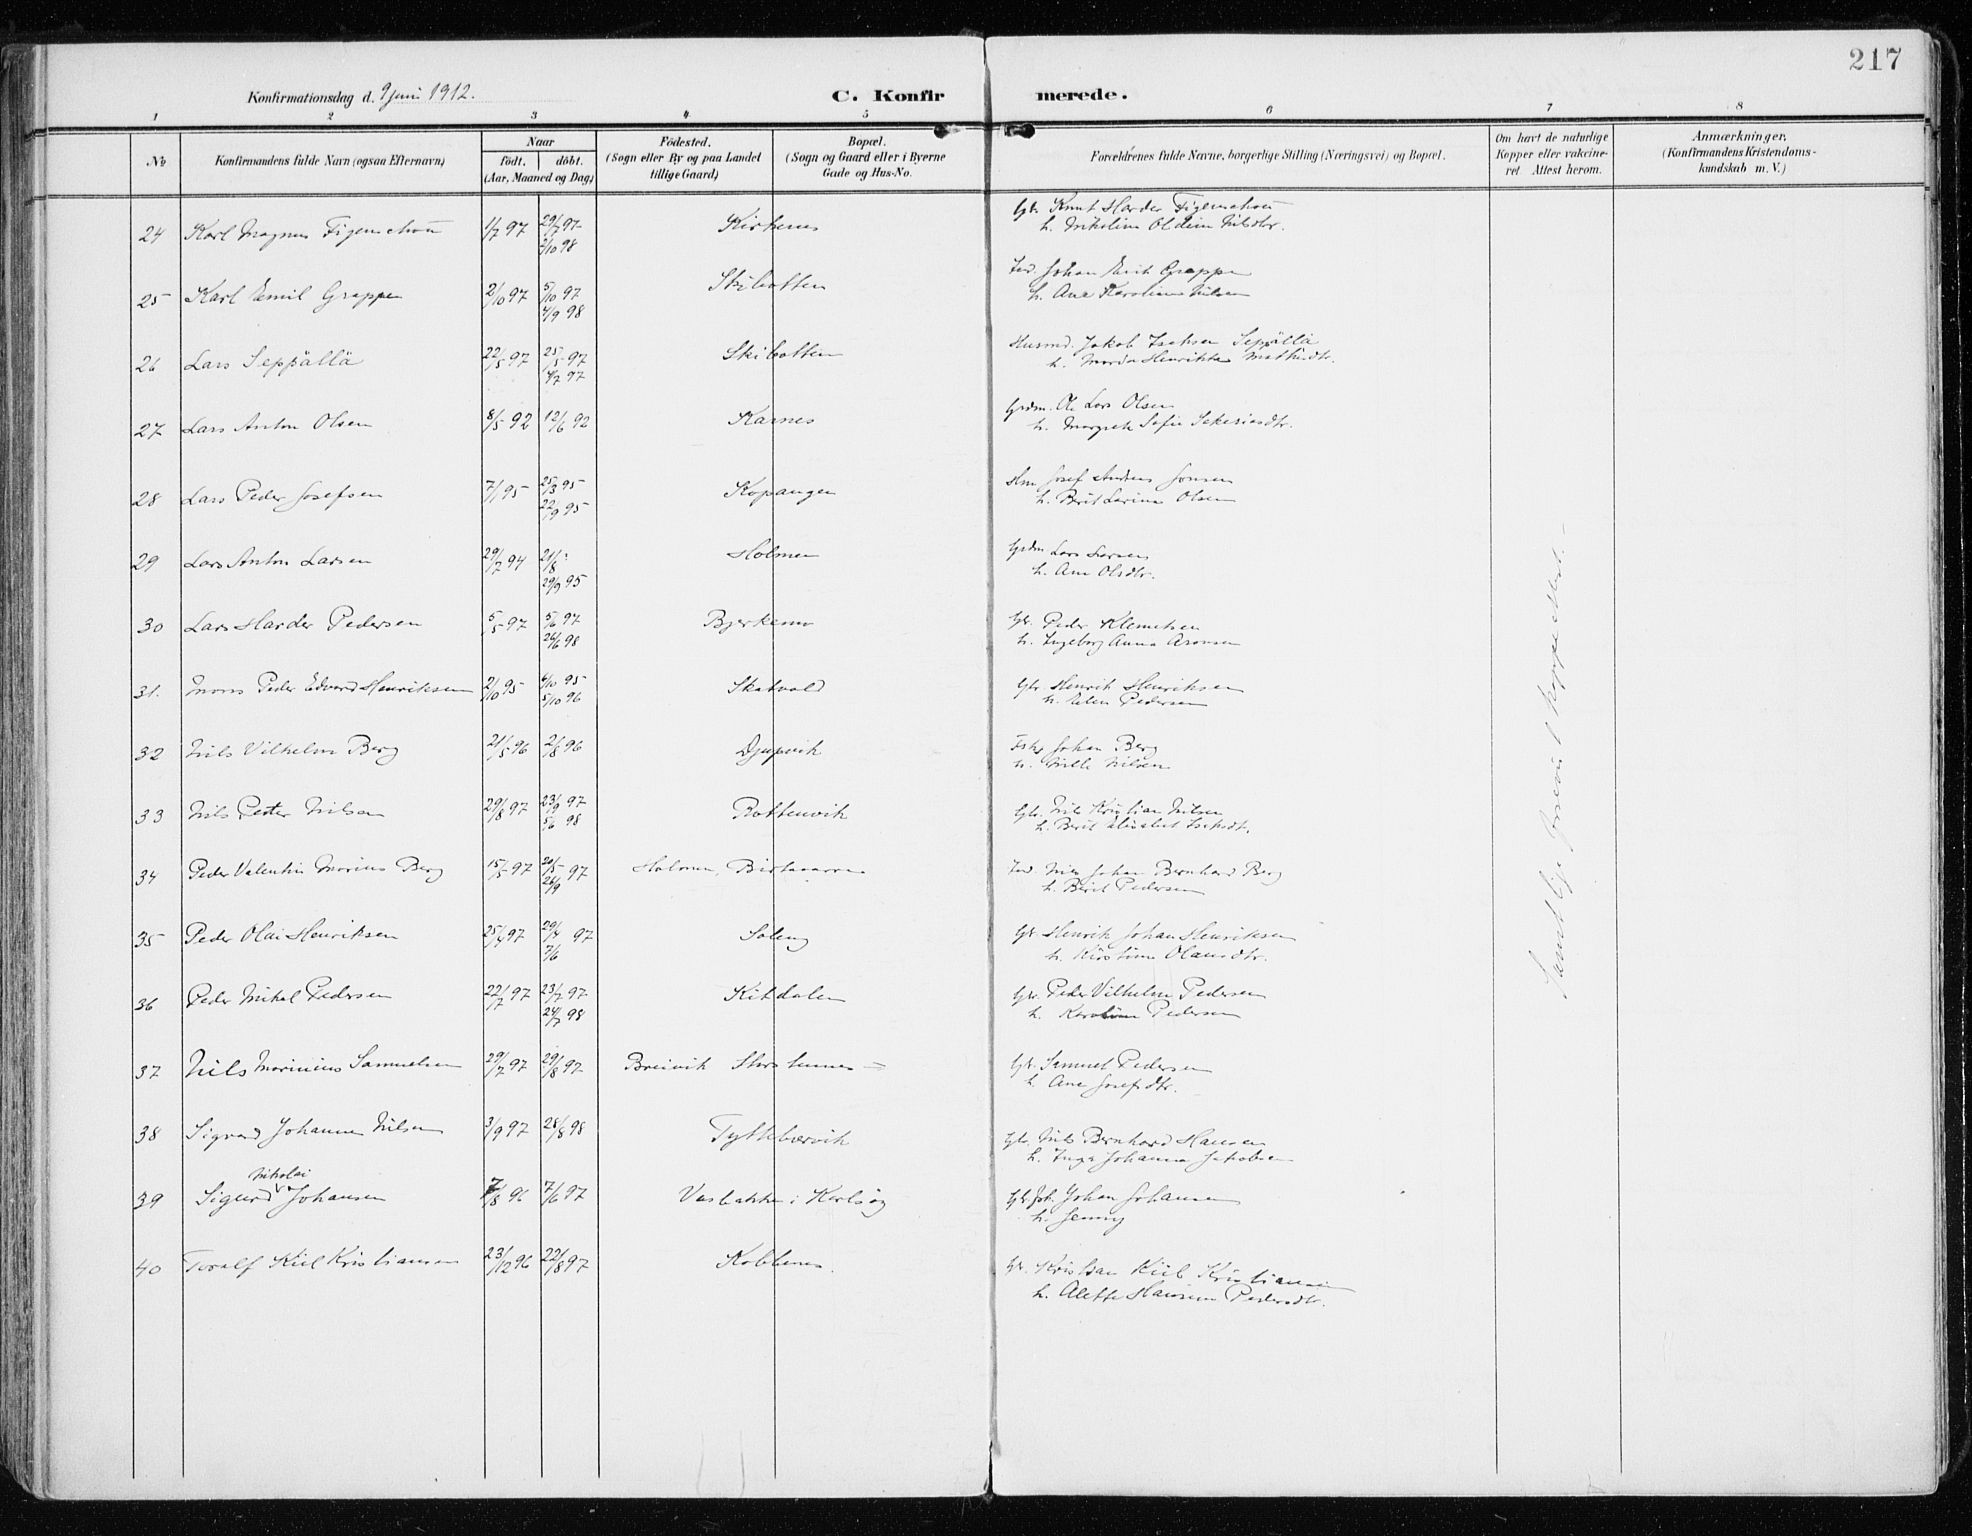 217
Konfirmationsdag d. 9 juni 1912.
C. Konfirmerede.
1 2 3 4 5 6 7 8
No
Konfirmandens fulde Navn (ogsaa Efternavn)
Naar
födt, döbt.
(Aar, Maaned og Dag)
Födested.
(Sogn eller By og paa Landet
tillige Gaard)
Bopæl.
(Sogn og Gaard eller i Byerne
Gade og Hus-No.
Forældrenes fulde Navne, borgerlige Stilling (Næringsvei) og Bopæl.
Om havt de naturlige
Kopper eller vakcine-
ret. Attest herom.
Anmærkninger,
(Konfirmandens Kristendoms-
kundskab m. V.)
24 Karl Magnus Figenschou 1/7 97 29/7 97 Kirkenes Gbr. Knut Harder Figenschou
2/10 98 h. Nikoline Nilsdtr.
25 Karl Emil Grappe 2/10 97 5/10 97 Skibotten Johan Erik Grappe
4/9 98 h. Ane Karoline Nilsen
26 Lars Seppällä 22/5 97 25/5 97 Skibotten Husmd. Jakob Isaksen Seppällä
4/7 97 h. Henrikka
27 Lars Anton Olsen 8/5 92 12/6 92 Karnes Grdm. Ole Lars Olsen
h. Margrete Sofie
28 Lars Peder Josefsen 7/1 95 25/3 95 Kopangen Josef Andreas Jonsen
22/9 95 h. Berit Larine Olsen
29 Lars Anton Larsen 29/7 94 21/8 Holmen Grdm Lars Larsen
29/9 95 h. Ane Olsdtr.
30 Lars Harder Pedersen 5/5 97 5/6 97 Bjerkemo Gbr. Peder Klemetsen
26/6 98 h. Ingeborg Anna Aronsen
31. Mons Peder Edvard Henriksen 2/10 95 6/10 95 Skatvold Gbr Henrik Henriksen
5/10 96 h. Elen Pedersen
32 Nils Vilhelm Berg 21/5 96 2/8 96 Djupvik Johan Berg
h. Nilsen
33 Nils Peder Nilsen 29/8 97 23/9 97 Rottenvik Gbr. Nils Kristian Nilsen
5/6 98 h. Berit Elisabet
34 Peder Valentin Marius Berg 15/5 97 20/5 97 Holmen, Birtavarre Nils Johan Bernhard Berg
26/9 h. Berit Pedersen
35 Peder Olai Henriksen 25/4 97 29/4 97 Soleng Gbr. Henrik Johan Henriksen
7/6 h. Kirstine Olausdtr.
36 Peder Mikal Pedersen 22/7 97 23/7 97 Kitdalen Gbr. Peder Vilhelm Pedersen
24/7 98 h. Karoline Pedersen
37 Nils Marinius Samuelsen 29/7 97 29/8 97 Breivik Storstennes Gbr. Samuel Pedersen
h. Ane Josefsdtr.
38 Sigvard Johannes Nilsen 3/9 97 28/8 98 Tyttebærvik Gbr. Nils Bernhard Hansen
h. Inga Johanna Jakobsen
Nikolai
39 Sigurd Johansen 7/8 96 7/6 97 Vasbakke i Karlsøy Johan Johansen
h. Jenny
40 Toralf Kiil Kristiansen 23/12 96 22/8 97 Koblenes. Gbr. Kristian Kiil Kristiansen
h. Alette Hansine Pedersdtr.
Samtlige forevist koppeattest.